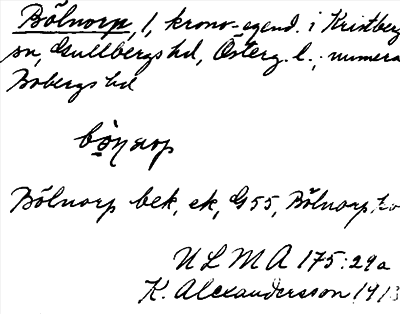 Bölnorp, 1, krono-egend. i Kristberg
sn, Gullbergs hd, Österg. l.; numera
Bobergs hd
Bölnorp bek, ek, G55, Bölnorp,
ULMA 175:29a
K. Alexandersson 191